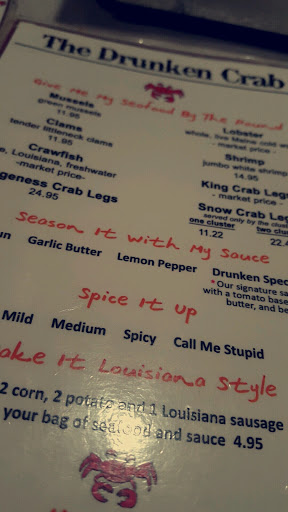 The Drunken Crab
Give Me My Seafood By The Pound
Mussels
green mussels
11.95
Clams
tender littleneck clams
11.95
Crawfish
Louisiana, freshwater
-market price-
geness Crab Legs
24.95
Lobster
whole, live Maine cold
- market price -
Shrimp
jumbo white shrimp
14.95
King Crab Leg
- market price -
Snow Crab Leg
served only by the clus
one cluster
two clus
11.22
22.4
Season It With My Sauce
un Garlic Butter Lemon Pepper Drunken Spec
*Our signature sa
with a tomato base
butter, and be
Spice It Up
Mild Medium Spicy Call Me Stupid
ake It Louisiana Style
2 corn, 2 potato and 1 Louisiana sausage
your bag of seafood and sauce 4.95